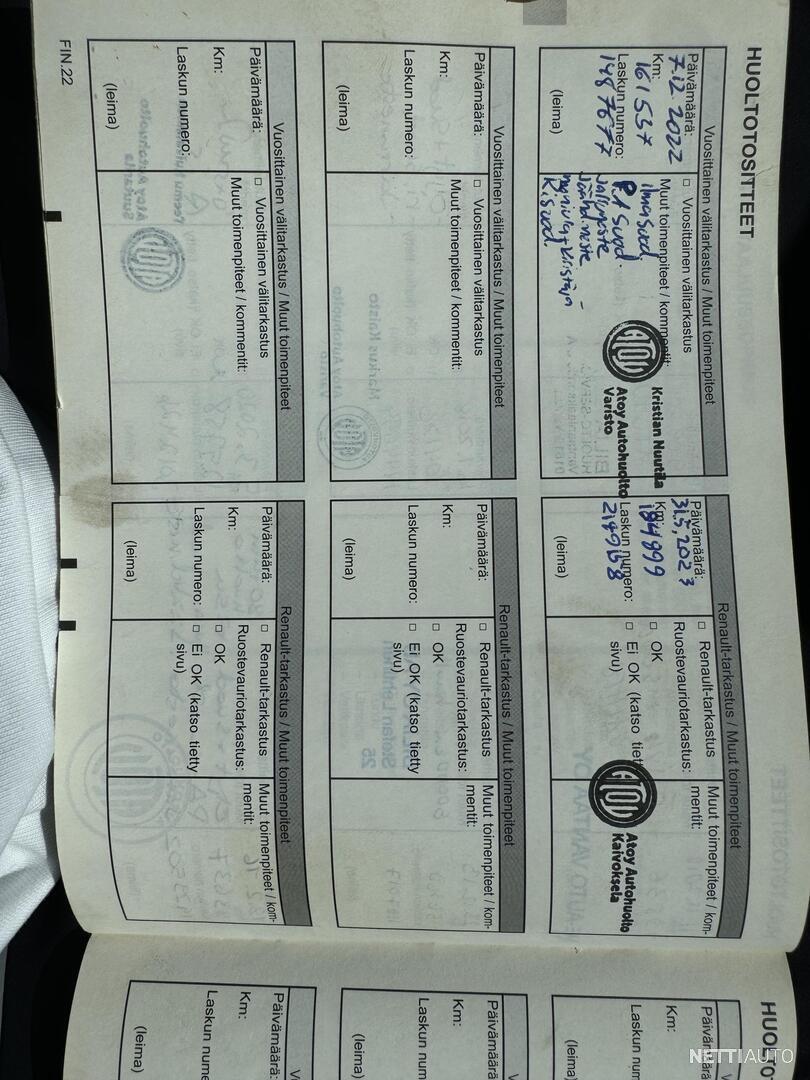 HUOLTOTOSITTEET
Vuosittainen välitarkastus / Muut toimenpiteet
Päivämäärä:
7.12.2022
Km:
161557
Laskun numero:
1487677
(leima)
□ Vuosittainen välitarkastus
Muut toimenpiteet / kommentit:
ilmasuod.
Kristian Nuutila
Atoy Autohuolto
Varisto
ATOY
Renault-tarkastus / Muut toimenpiteet
Päivämäärä:
31.5.2023
Km:
184999
Laskun numero:
2149658
(leima)
□ Renault-tarkastus
Ruostevauriotarkastus:
□ OK
□ Ei OK (katso tietty
Muut toimenpiteet / kom-
mentit:
ATOY
Atoy Autohuolto
Kaivoksela
Vuosittainen välitarkastus / Muut toimenpiteet
Päivämäärä:
Km:
Laskun numero:
(leima)
□ Vuosittainen välitarkastus
Muut toimenpiteet / kommentit:
Renault-tarkastus / Muut toimenpiteet
Päivämäärä:
Km:
Laskun numero:
(leima)
□ Renault-tarkastus
Ruostevauriotarkastus:
□ OK
□ Ei OK (katso tietty
sivu)
Muut toimenpiteet / kom-
mentit:
Vuosittainen välitarkastus / Muut toimenpiteet
Päivämäärä:
Km:
Laskun numero:
(leima)
□ Vuosittainen välitarkastus
Muut toimenpiteet / kommentit:
Renault-tarkastus / Muut toimenpiteet
Päivämäärä:
Km:
Laskun numero:
(leima)
□ Renault-tarkastus
Ruostevauriotarkastus:
□ OK
□ Ei OK (katso tietty
sivu)
Muut toimenpiteet / kom-
mentit:
FIN.22
HUOLTO
Päivämäärä:
Km:
Laskun num
(leima)
Päivämäärä:
Km:
Laskun num
(leima)
Päivämäärä:
Km:
Laskun nume
(leima)
NETTIAUTO